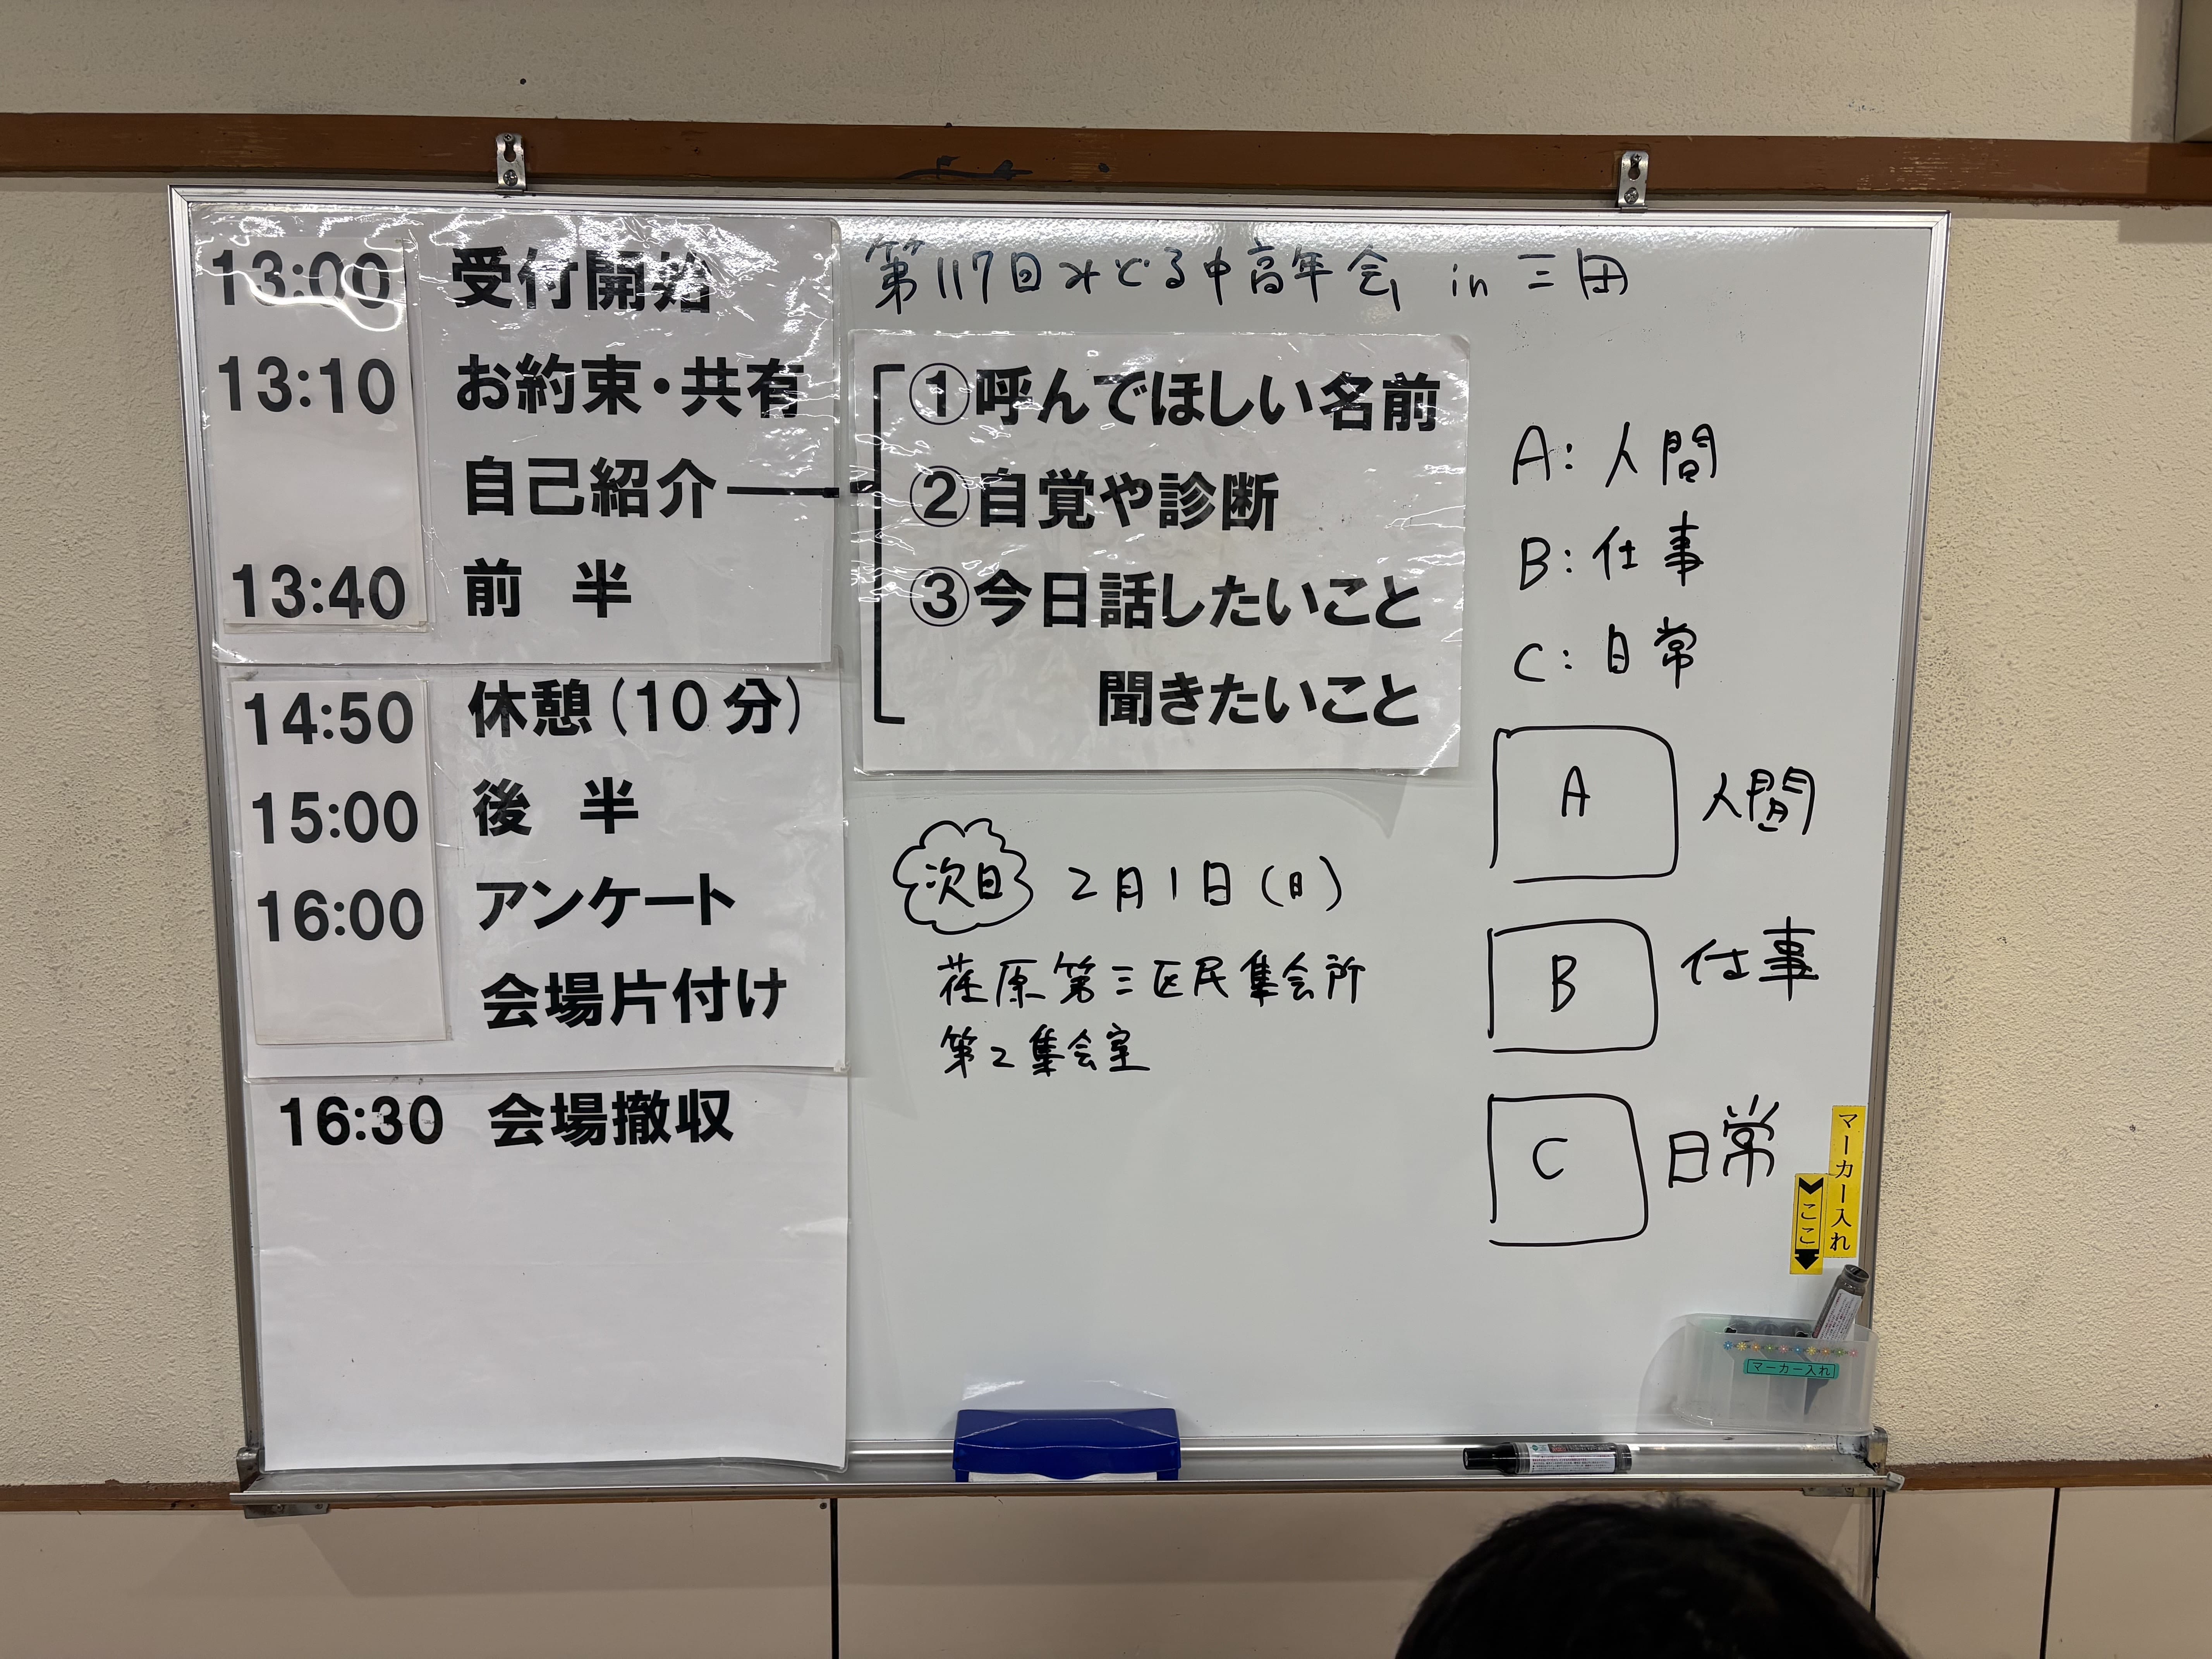 第117回みどる中高年会 in 三田
13:00 受付開始
13:10 お約束・共有
自己紹介
13:40 前 半
14:50 休憩(10分)
15:00 後 半
16:00 アンケート
会場片付け
16:30 会場撤収
①呼んでほしい名前
②自覚や診断
③今日話したいこと
聞きたいこと
次回 2月1日(日)
荏原第三区民集会所
第2集会室
A:人間
B:仕事
C:日常
A 人間
B 仕事
C 日常
マーカー入れ
ここ
マーカー入れ